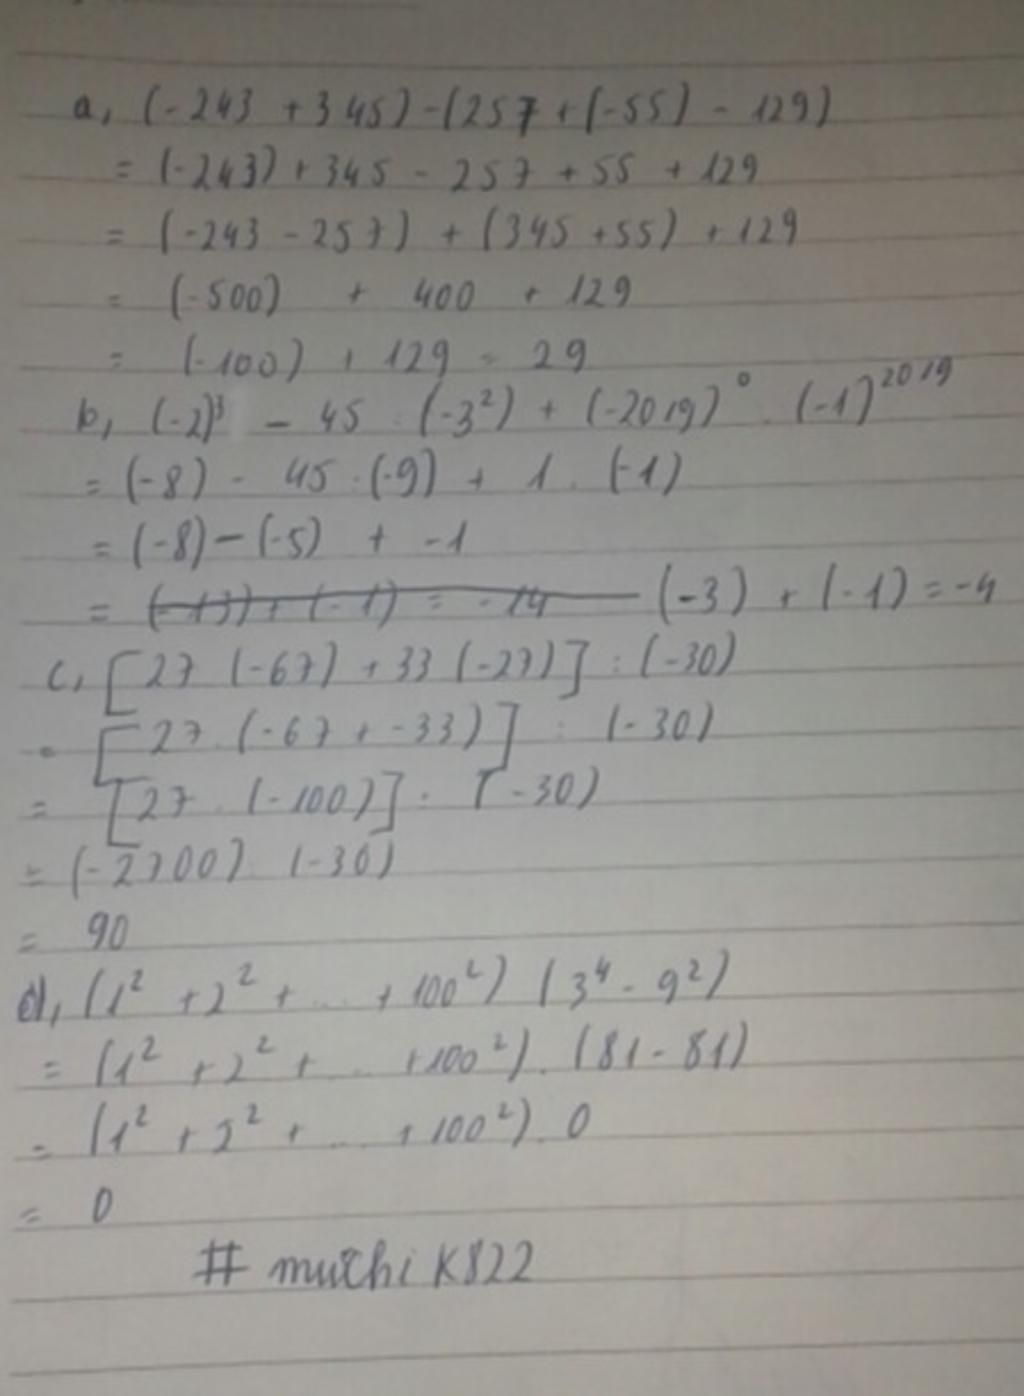 a, (-243 + 345) - (257 + (-55) - 129)
= (-243) + 345 - 257 + 55 + 129
= (-243 - 257) + (345 + 55) + 129
= (-500) + 400 + 129
= (-100) + 129 = 29
b, (-2)³ - 45 : (-3²) + (-2019)⁰ . (-1)²⁰¹⁹
= (-8) - 45 : (-9) + 1 . (-1)
= (-8) - (-5) + -1
= (-13) + (-1) = -14 (-3) + (-1) = -4
c, [27 (-67) + 33 (-27)] : (-30)
= [27 . (-67 + -33)] : (-30)
= [27 . (-100)] : (-30)
= (-2700) : (-30)
= 90
d, (1² + 2² + ... + 100²) (3⁴ - 9²)
= (1² + 2² + ... + 100²) . (81 - 81)
= (1² + 2² + ... + 100²) . 0
= 0
# muchi K822